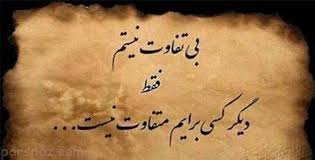 بی تفاوت نیستم
فقط
دیگر کسی برایم متفاوت نیست...